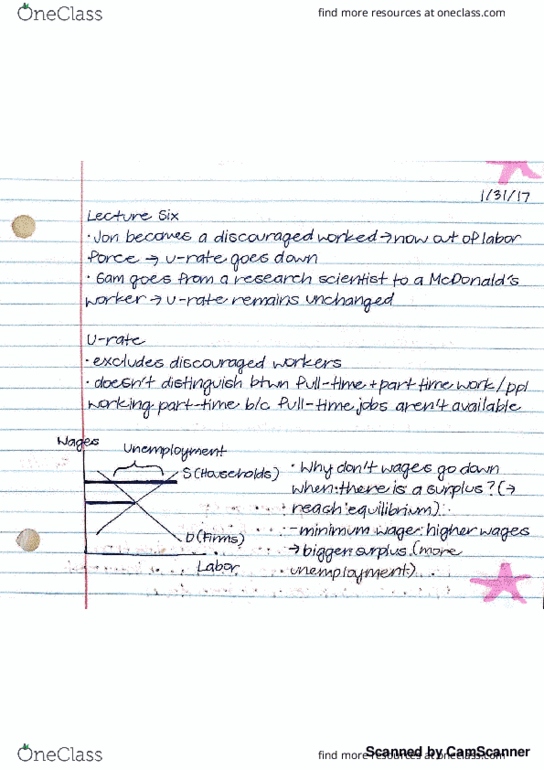 OneClass
find more resources at oneclass.com
1/31/17
Lecture Six
· Jon becomes a discouraged worked → now out of labor
force → u-rate goes down
· Sam goes from a research scientist to a McDonald's
worker → u-rate remains unchanged
U-rate
· excludes discouraged workers
· doesn't distinguish btwn full-time + part time work/ppl
working part-time b/c full-time jobs aren't available
Wages
Unemployment
S (Households)
D (Firms)
Labor
· Why don't wages go down
when there is a surplus? (→
reach equilibrium)
- minimum wage: higher wages
→ bigger surplus (more
unemployment)
OneClass
find more resources at oneclass.com
Scanned by CamScanner